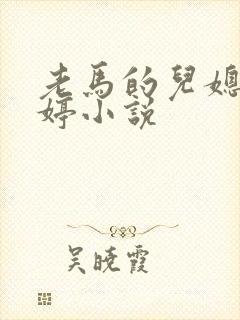 老馬的兒媳
婷小說
吴曉霞